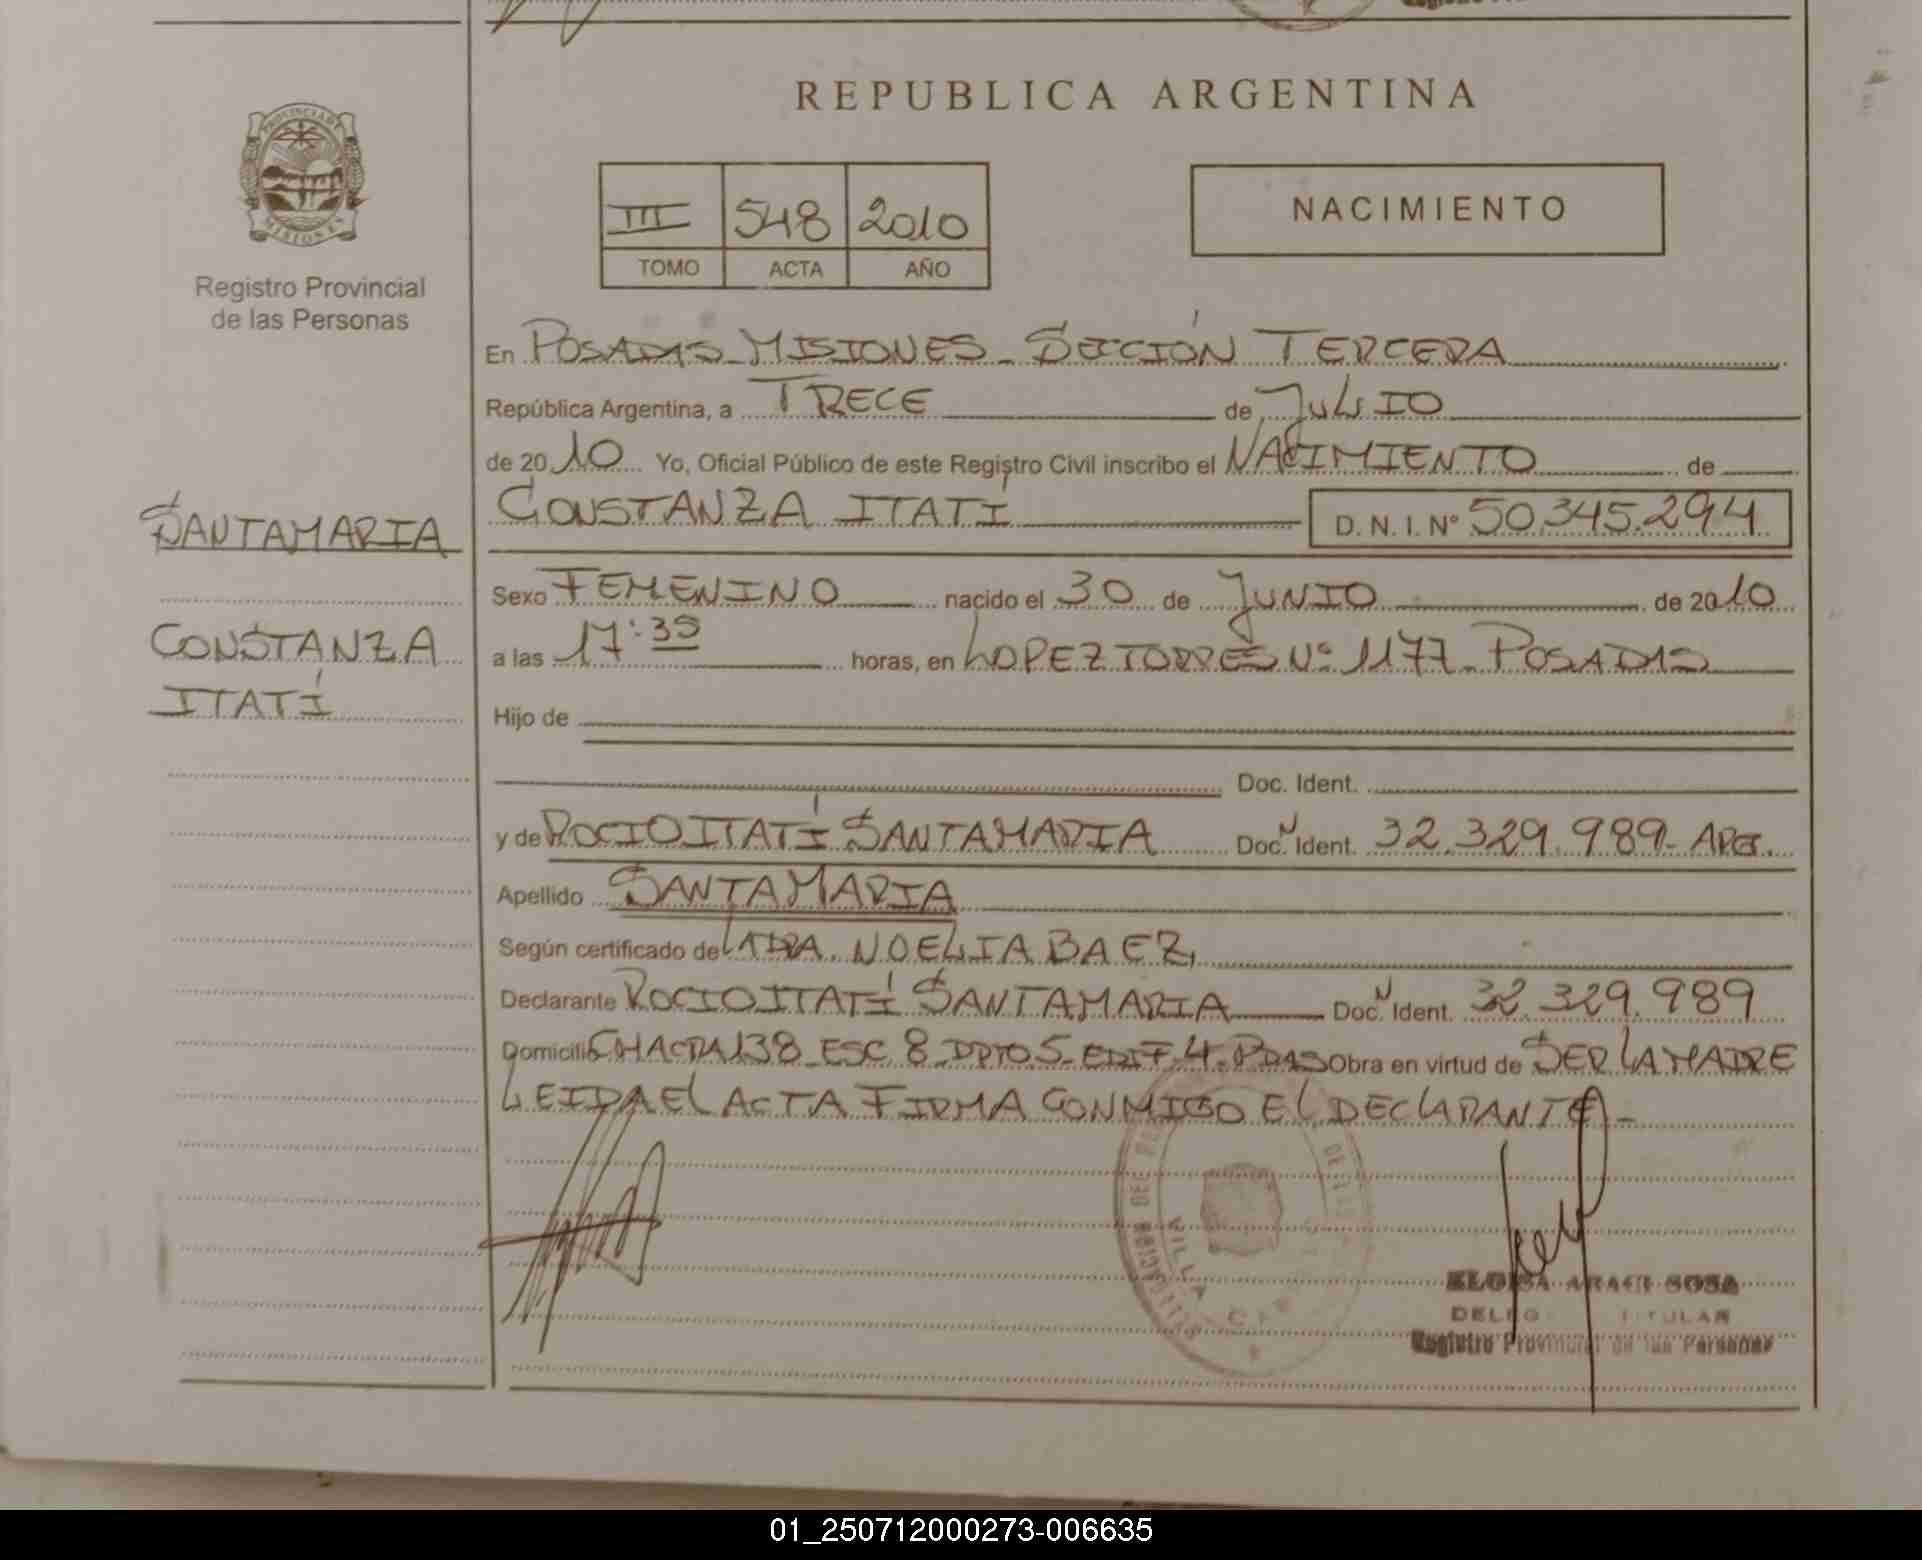 REPUBLICA ARGENTINA
PROVINCIA DE
MISIONES
Registro Provincial
de las Personas
III 548 2010
TOMO ACTA AÑO
NACIMIENTO
En POSADAS MISIONES - SECCIÓN TERCERA
República Argentina, a TRECE de JULIO
de 2010 Yo, Oficial Público de este Registro Civil inscribo el NACIMIENTO de
CONSTANZA ITATÍ D. N. I. Nº 50.345.294
SANTAMARIA
CONSTANZA
ITATÍ
Sexo FEMENINO nacido el 30 de JUNIO de 2010
a las 17:35 horas, en LOPEZ TORRES Nº 1177 - POSADAS
Hijo de
Doc. Ident.
y de ROCIO ITATÍ SANTAMARIA Doc. N Ident. 32.329.989 - ARG.
Apellido SANTAMARIA
Según certificado de LA DRA. NOELIA BAEZ
Declarante ROCIO ITATÍ SANTAMARIA Doc. N Ident. 32.329.989
Domicilio CHACRA 138 - ESC. 8 - DPTO 5 - EDIF. 4 - PDAS Obra en virtud de SER LA MADRE
LEIDA EL ACTA FIRMA CONMIGO EL DECLARANTE -
VILLA
ELOISA ARACI SOSA
TITULAR
Registro Provincial de las Personas
01_250712000273-006635